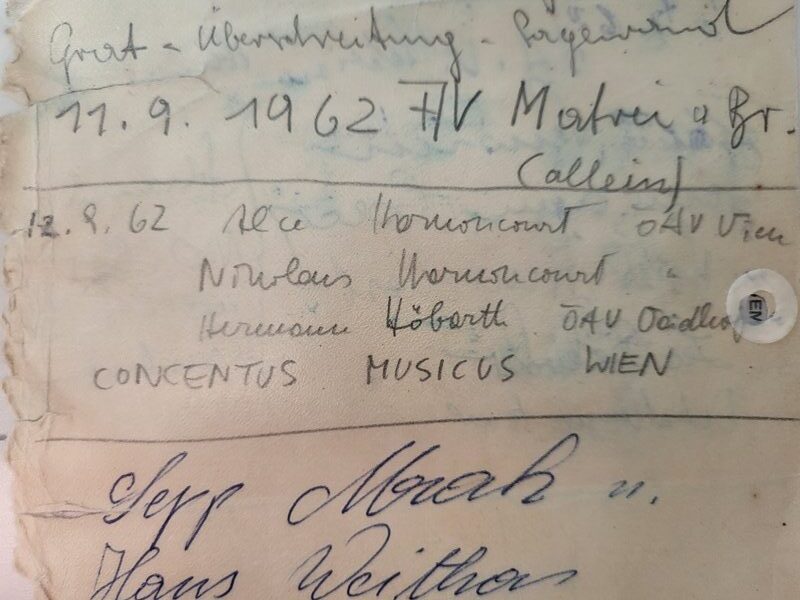 Grat - Überschreitung - Sägewand
11.9. 1962 AV Matrei a Br.
(allein)
12.9.62 Alice Harnoncourt ÖAV Wien
Nikolaus Harnoncourt "
Hermann Höbarth ÖAV Waidhofen
CONCENTUS MUSICUS WIEN
Sepp u.
Hans